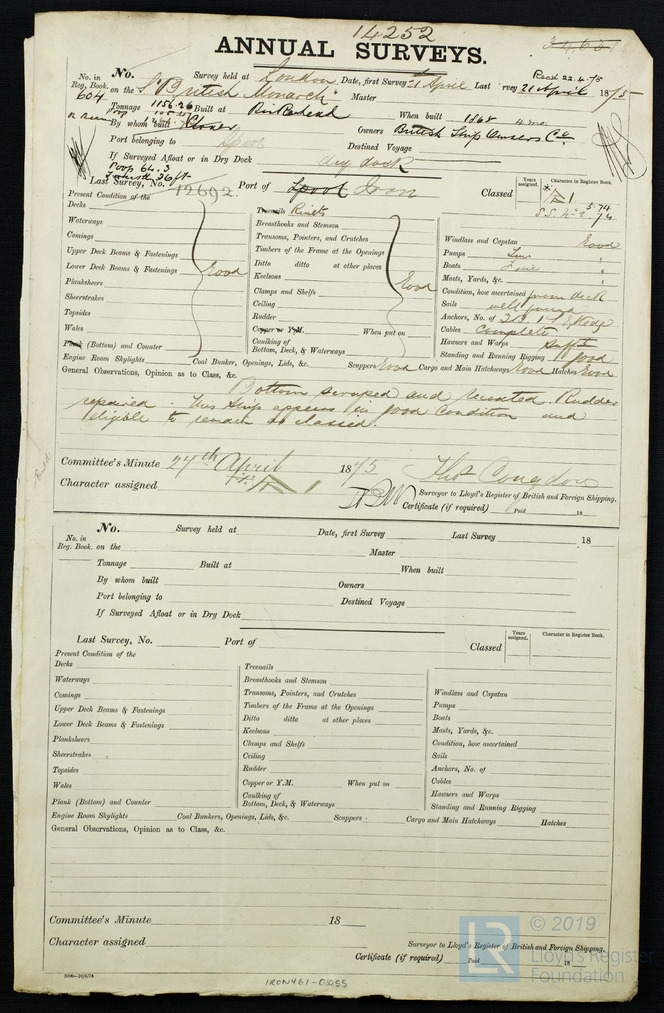 14252
ANNUAL SURVEYS.
Read 22.4.75
No. in Reg. Book. No. Survey held at London Date, first Survey 21 April Last Survey 21 April 1875
604 on the "British Monarch" Master
Tonnage 1156.26 Built at Birkenhead When built 1868
By whom built Owners British Ship Owners Co.
Port belonging to Lpool Destined Voyage
If Surveyed Afloat or in Dry Dock dry dock
Poop 64.3
Last Survey, No. 12692 Port of Lpool Iron Classed
Years assigned. Character in Register Book.
5.74
Present Condition of the
Decks
Waterways
Comings
Upper Deck Beams & Fastenings
Lower Deck Beams & Fastenings Good
Planksheers
Sheerstrakes
Topsides
Wales
Plank (Bottom) and Counter
Treenails Rivets
Breasthooks and Stemson
Transoms, Pointers, and Crutches
Timbers of the Frame at the Openings
Ditto ditto at other places
Keelsons Good
Clamps and Shelfs
Ceiling
Rudder
Copper or Y.M. When put on
Caulking of Bottom, Deck, & Waterways
Windlass and Capstan Good
Pumps
Boats
Masts, Yards, &c. "
Condition, how ascertained from deck
Sails well found
Anchors, No. of 3B. 1S. 1 Kedge
Cables Complete
Hawsers and Warps Suffict
Standing and Running Rigging good
Engine Room Skylights Coal Bunker, Openings, Lids, &c. Scuppers Good Cargo and Main Hatchways Good Hatches Good
General Observations, Opinion as to Class, &c.
Bottom scraped and recoated. Rudder
repaired. This Ship appears in good condition and
eligible to remain as classed.
Committee's Minute 27th April 1875 Thos Congdon
Character assigned Surveyor to Lloyd's Register of British and Foreign Shipping.
Certificate (if required) Paid 18
No. in Reg. Book. No. Survey held at Date, first Survey Last Survey 18
on the Master
Tonnage Built at When built
By whom built Owners
Port belonging to Destined Voyage
If Surveyed Afloat or in Dry Dock
Last Survey, No. Port of Classed
Years assigned. Character in Register Book.
Present Condition of the
Decks
Waterways
Comings
Upper Deck Beams & Fastenings
Lower Deck Beams & Fastenings
Planksheers
Sheerstrakes
Topsides
Wales
Plank (Bottom) and Counter
Treenails
Breasthooks and Stemson
Transoms, Pointers, and Crutches
Timbers of the Frame at the Openings
Ditto ditto at other places
Keelsons
Clamps and Shelfs
Ceiling
Rudder
Copper or Y.M. When put on
Caulking of Bottom, Deck, & Waterways
Windlass and Capstan
Pumps
Boats
Masts, Yards, &c.
Condition, how ascertained
Sails
Anchors, No. of
Cables
Hawsers and Warps
Standing and Running Rigging
Engine Room Skylights Coal Bunkers, Openings, Lids, &c. Scuppers Cargo and Main Hatchways Hatches
General Observations, Opinion as to Class, &c.
Committee's Minute 18
Character assigned Surveyor to Lloyd's Register of British and Foreign Shipping.
Certificate (if required) Paid 18
IRON461-0355
LR © 2019
Lloyd's Register
Foundation